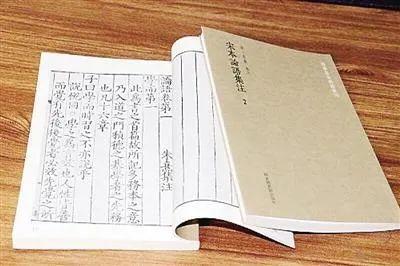 論語卷第一　朱熹集注
學而第一
此為書之首篇故所記多務本之意
乃入道之門積德之基學者之先務
也凡十六章
子曰學而時習之不亦說乎
說悅同 學之為言 也人性皆善
而覺有先後後覺者必效先覺之
宋本論語集注 2
國家圖書館出版社